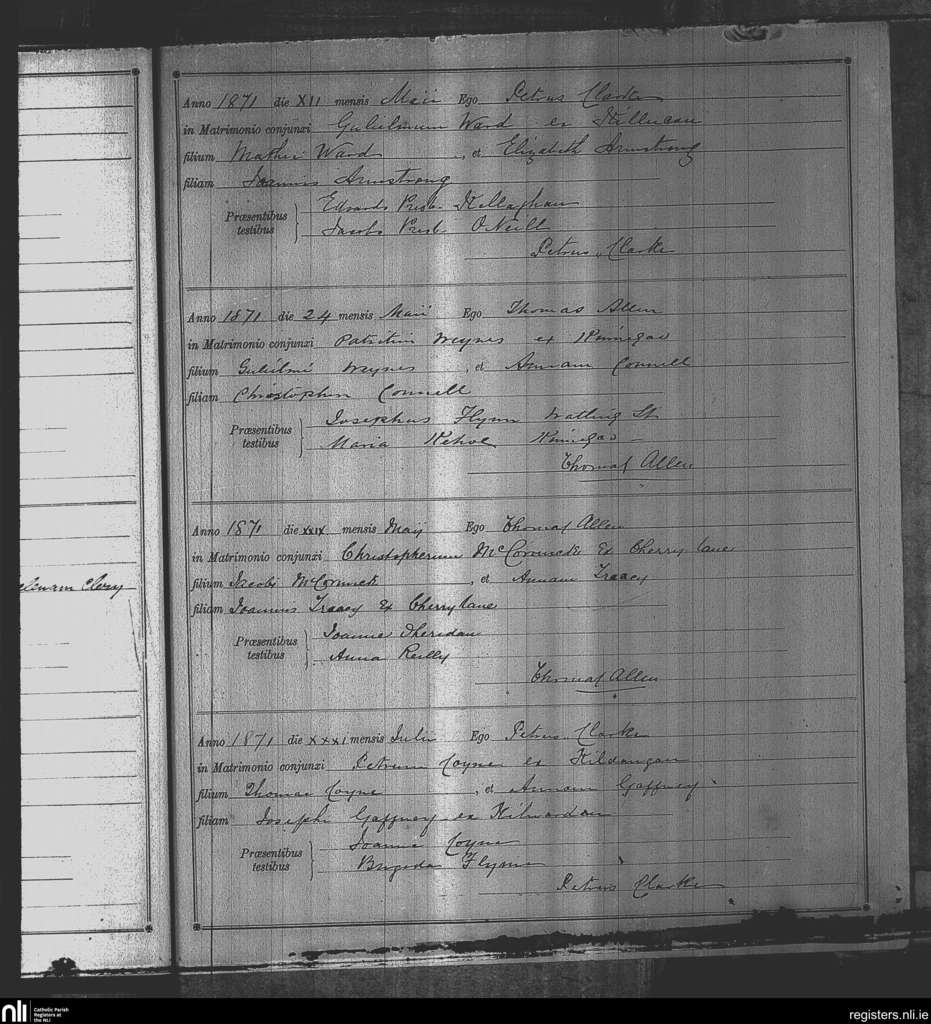 Anno 1871 die XII mensis Maii Ego Petrus Clarke
in Matrimonio conjunxi Gulielmum Ward ex Killucan
filium Mathei Ward, et Elizabeth Armstrong
filiam Joannis Armstrong
Præsentibus testibus Edwards Presb. Kellaghan
Jacobo Presb. O'Neill
Petrus Clarke
Anno 1871 die 24 mensis Maii Ego Thomas Allen
in Matrimonio conjunxi Patritium Meynes ex Kinnegad
filium Gulielmi Meynes, et Annam Connell
filiam Christopheri Connell
Præsentibus testibus Josephus Flynn Watling St.
Maria Kehoe Kinnegad
Thomas Allen
Anno 1871 die xxix mensis Maij Ego Thomas Allen
in Matrimonio conjunxi Christopherum McCormick Ex Cherry lane
filium Jacobi McCormick, et Annam Tracey
filiam Joannis Tracey Ex Cherry lane
Præsentibus testibus Joanne Sheridan
Anna Reilly
Thomas Allen
Anno 1871 die xxxi mensis Julii Ego Petrus Clarke
in Matrimonio conjunxi Petrum Coyne ex Kildangan
filium Thomae Coyne, et Annam Gaffney
filiam Josephi Gaffney ex
Præsentibus testibus Joanne Coyne
Brigida Flynn
Petrus Clarke
Clery
nli Catholic Parish
Registers at
the NLI
registers.nli.ie